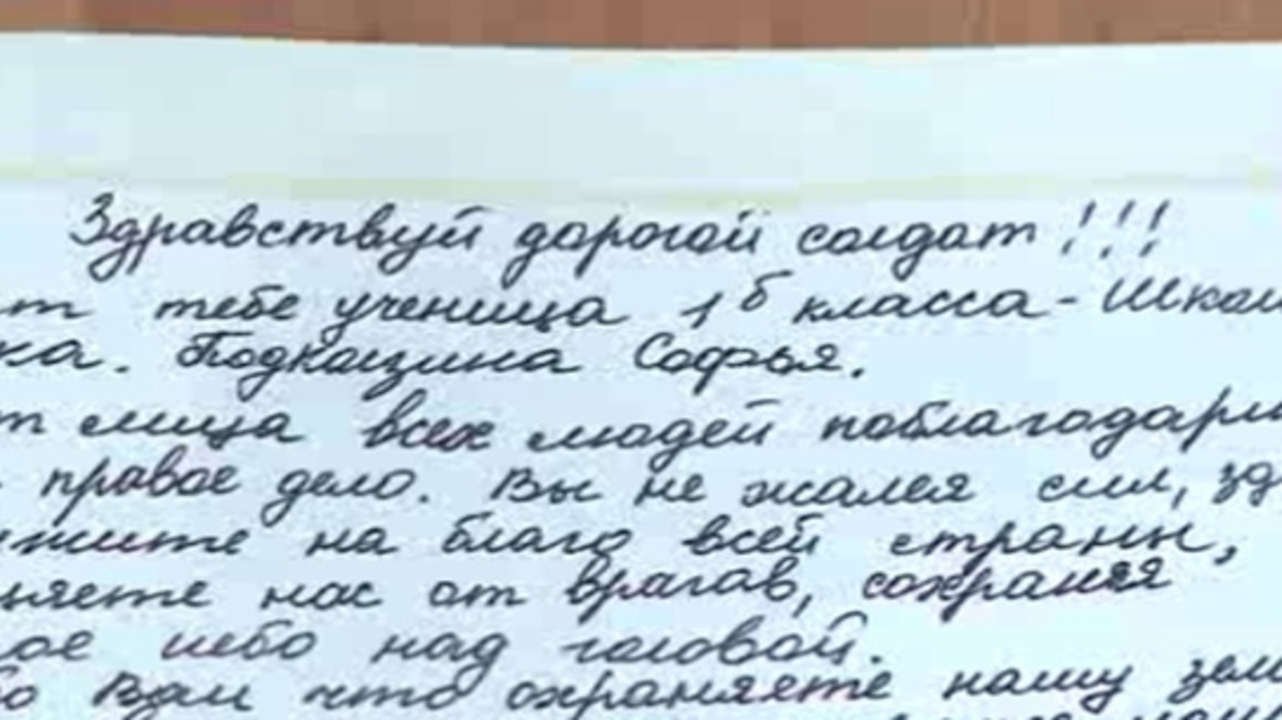 Здравствуй дорогой солдат!!!
ет тебе ученица 1б класса - Школ
ка. Подкацина Софья.
от лица всех людей поблагодари
правое дело. Вы не жалея сил, зд
ужите на благо всей страны,
няете нас от врагов, сохраняя
ое небо над головой.
бо Вам что охраняете нашу зем